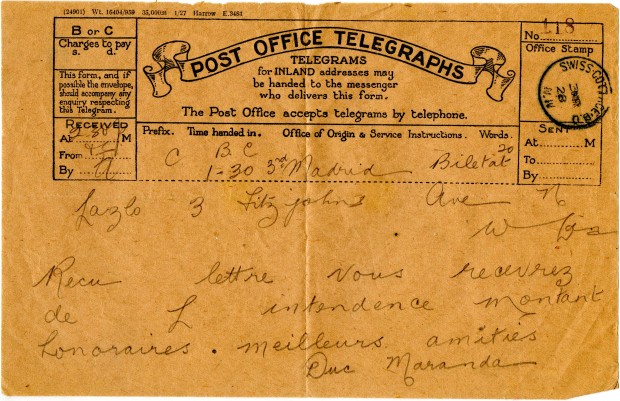 (24961) Wt. 16494/959 35,000m 1/27 Harrow E.3481
B or C
Charges to pay
s. d.
This form, and if
possible the envelope,
should accompany any
enquiry respecting
this Telegram.
RECEIVED
At M
From
By
POST OFFICE TELEGRAPHS
TELEGRAMS
for INLAND addresses may
be handed to the messenger
who delivers this form.
The Post Office accepts telegrams by telephone.
No. 118
Office Stamp
SWISS COTTAGE B.O.
N.W.
28
Prefix. Time handed in. Office of Origin & Service Instructions. Words.
C B C 20
1-30 3rd Madrid
SENT
At M
To
By
Lazlo 3 Fitzjohns Ave N
W
Recu lettre vous recevrez
de L intendence montant
honoraires . meilleurs amities
Duc Maranda